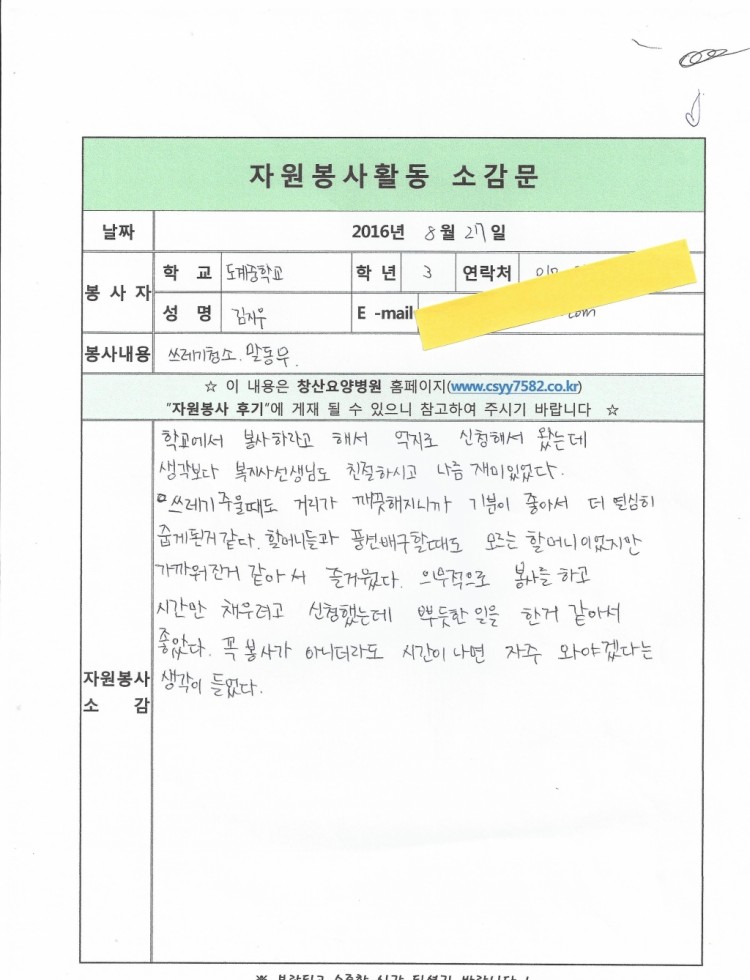 자원봉사활동 소감문
날짜 2016년 8월 27일
봉사자 학 교 도계중학교 학 년 3 연락처
성 명 김지우 E -mail .com
봉사내용 쓰레기청소. 말동무.
☆ 이 내용은 창산요양병원 홈페이지(www.csyy7582.co.kr)
"자원봉사 후기"에 게재 될 수 있으니 참고하여 주시기 바랍니다 ☆
자원봉사 소 감
학교에서 봉사하라고 해서 억지로 신청해서 왔는데
생각보다 복지사선생님도 친절하시고 나름 재미있었다.
쓰레기주울때도 거리가 깨끗해지니까 기분이 좋아서 더 열심히
줍게된거같다. 할머니들과 풍선배구할때도 모르는 할머니이었지만
가까워진거 같아서 즐거웠다. 의무적으로 봉사를 하고
시간만 채우려고 신청했는데 뿌듯한 일을 한거 같아서
좋았다. 꼭 봉사가 아니더라도 시간이 나면 자주 와야겠다는
생각이 들었다.